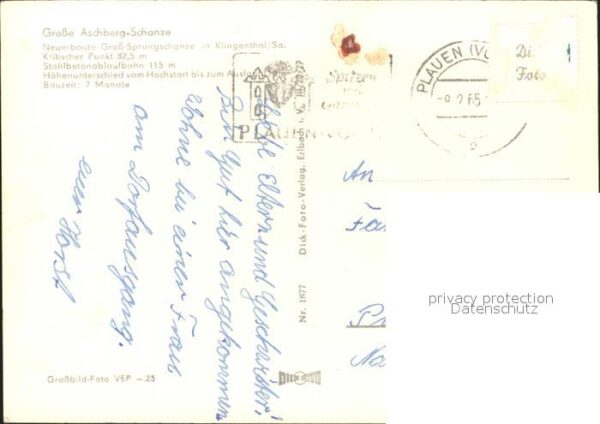 Große Aschberg-Schanze
Neuerbaute Groß-Sprungschanze in Klingenthal/Sa.
Kritischer Punkt 82,5 m
Stahlbetonablaufbahn 115 m
Höhenunterschied vom Hochstart bis zum Auslauf
Bauzeit: 7 Monate
Spitzen
PLAUEN
PLAUEN (VO
-8.2.65
Di
Foto
Liebe Eltern und Geschwister!
Bin gut hier angekommen
Wohne bei einer Frau
am Dorfausgang.
euer Horst
Dick-Foto-Verlag, Erlbach i. V.
Nr. 1877
An
Fa
DICK
Großbild-Foto VEP -.25
privacy protection
Datenschutz